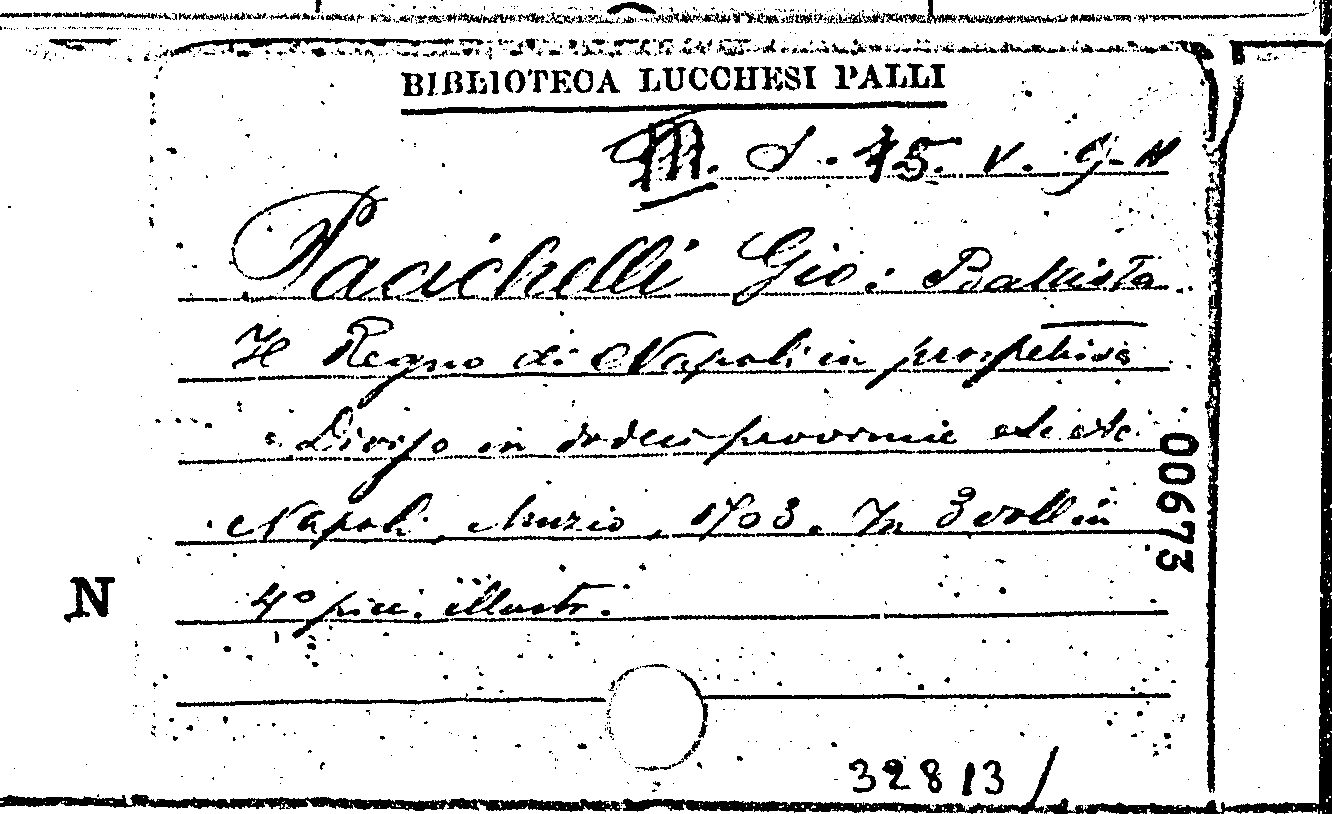 BIBLIOTECA LUCCHESI PALLI
III. S. 15. V. 9-11
Pacichelli Gio: Battista
Il Regno di Napoli in prospettiva
Diviso in dodeci provincie etc etc
Napoli, Muzio, 1703. In 3 voll in
4° picc. illustr.
N
00673
32813/